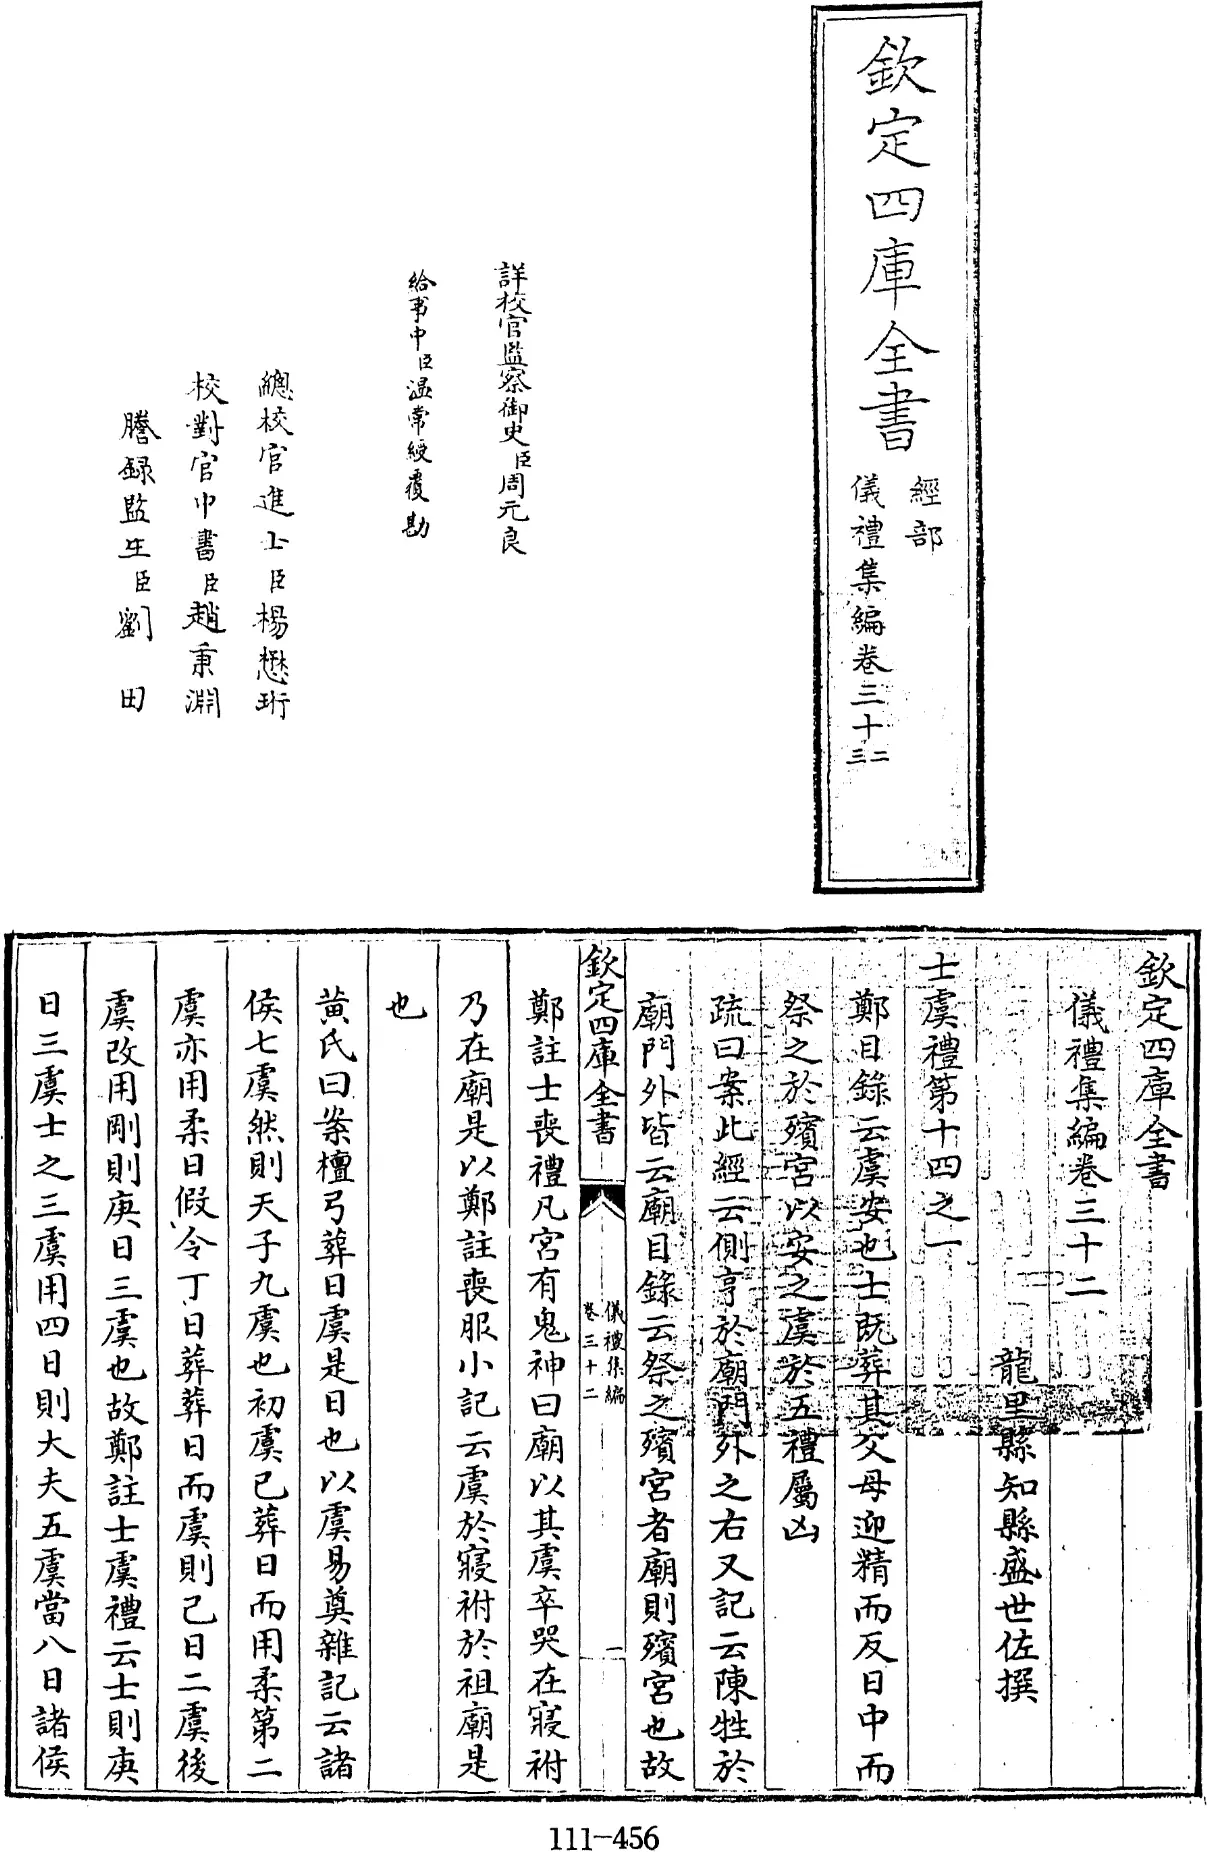 欽定四庫全書
經部
儀禮集編卷三十二
三
詳校官監察御史臣周元良
給事中臣溫常綬覆勘
總校官進士臣楊懋珩
校對官中書臣趙秉淵
謄録監生臣劉田
欽定四庫全書
儀禮集編卷三十二
龍里縣知縣盛世佐撰
士虞禮第十四之一
鄭目錄云虞安也士既葬其父母迎精而反日中而
祭之於殯宮以安之虞於五禮屬凶
疏曰案此經云側亨於廟門外之右又記云陳牲於
廟門外皆云廟目錄云祭之殯宮者廟則殯宮也故
欽定四庫全書
儀禮集編
卷三十二
一
鄭註士喪禮凡宮有鬼神曰廟以其虞卒哭在寢祔
乃在廟是以鄭註喪服小記云虞於寢祔於祖廟是
也
黃氏曰案檀弓葬日虞是日也以虞易奠雜記云諸
侯七虞然則天子九虞也初虞已葬日而用柔第二
虞亦用柔日假令丁日葬葬日而虞則己日二虞後
虞改用剛則庚日三虞也故鄭註士虞禮云士則庚
日三虞士之三虞用四日則大夫五虞當八日諸侯
111-456